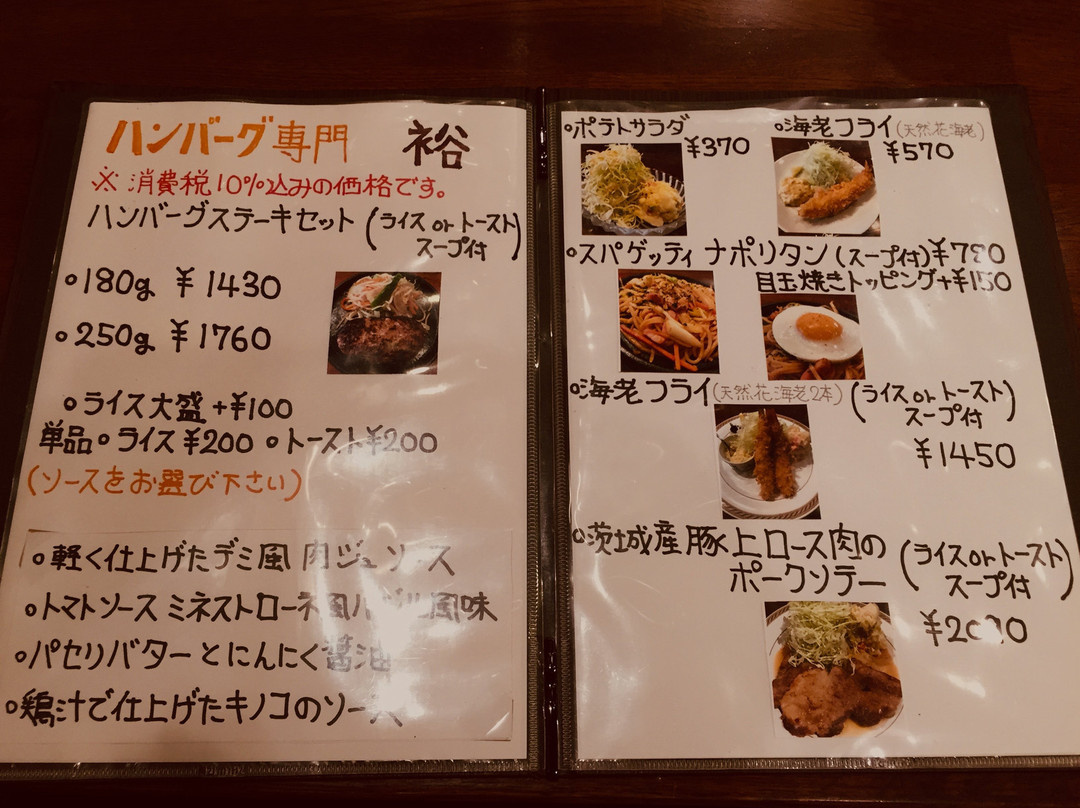 ハンバーグ専門 裕
※消費税10%込みの価格です。
ハンバーグステーキセット(ライス or トースト スープ付)
◦180g ¥1430
◦250g ¥1760
◦ライス大盛+¥100
単品◦ライス¥200 ◦トースト¥200
(ソースをお選び下さい)
◦軽く仕上げたデミ風 肉ジュ ソース
◦トマトソース ミネストローネ風 風味
◦パセリバターとにんにく醤油
◦鶏汁で仕上げたキノコのソース
◦ポテトサラダ ¥370
◦海老フライ(天然花海老) ¥570
◦スパゲッティ ナポリタン(スープ付)
目玉焼きトッピング+¥150
◦海老フライ(天然花海老2本)(ライス or トースト スープ付)
¥1450
◦茨城産豚上ロース肉の
ポークソテー(ライス or トースト スープ付)